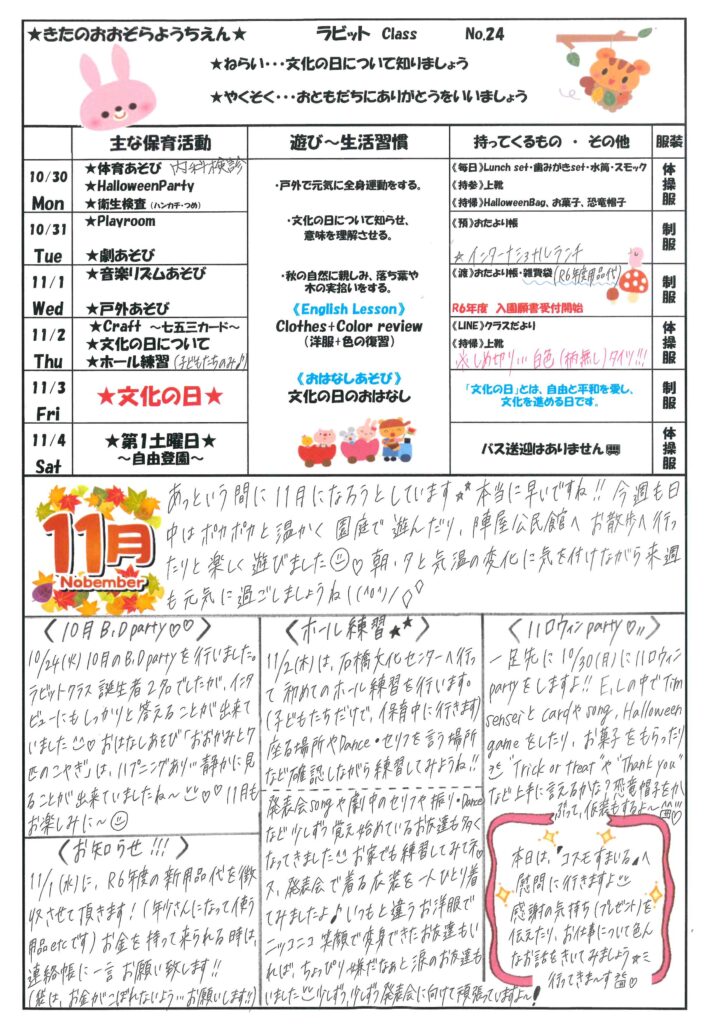 ★きたのおおぞらようちえん★ ラビット Class No.24
★ねらい・・・文化の日について知りましょう
★やくそく・・・おともだちにありがとうをいいましょう
主な保育活動 遊び～生活習慣 持ってくるもの ・ その他 服装
10/30
Mon
★体育あそび 内科検診
★HalloweenParty
★衛生検査（ハンカチ・つめ）
《毎日》Lunch set・歯みがきset・水筒・スモック
《持参》上靴
《持帰》HalloweenBag、お菓子、恐竜帽子
体操服
10/31
Tue
★Playroom
★劇あそび
《預》おたより帳
☆インターナショナルランチ
制服
11/1
Wed
★音楽リズムあそび
★戸外あそび
《渡》おたより帳・雑費袋（R6年度用品代）
R6年度 入園願書受付開始
制服
11/2
Thu
★Craft ～七五三カード～
★文化の日について
★ホール練習（子どもたちのみ♪）
《LINE》クラスだより
《持帰》上靴
※しめ切り…白色（柄無し）タイツ!!!
体操服
11/3
Fri
★文化の日★
「文化の日」とは、自由と平和を愛し、
文化を進める日です。
制服
11/4
Sat
★第1土曜日★
～自由登園～
バス送迎はありません
体操服
・戸外で元気に全身運動をする。
・文化の日について知らせ、
意味を理解させる。
・秋の自然に親しみ、落ち葉や
木の実拾いをする。
《English Lesson》
Clothes+Color review
（洋服+色の復習）
《おはなしあそび》
文化の日のおはなし
11月
Nobember
あっという間に11月になろうとしています☆☆本当に早いですね!! 今週も日
中はポカポカと温かく園庭で遊んだり、陣屋公民館へお散歩へ行っ
たりと楽しく遊びました☺♡朝・夕と気温の変化に気を付けながら来週
も元気に過ごしましょうね((^o^)/◇◇
〈10月B.Dparty♡♡〉
10/24(火)10月のB.Dpartyを行いました。
ラビットクラス誕生者2名でしたが、インタ
ビューにもしっかりと答えることが出来て
いました♡おはなしあそび「おおかみと7
匹のこやぎ」は、ハプニングあり…静かに見
ることが出来ていましたね～♡♡11月も
お楽しみに～☺
〈お知らせ!!!〉
11/1(水)に、R6年度の新用品代を徴
収させて頂きます！(年少さんになって使う
用品etcです)お金を持って来られる時は、
連絡帳に一言お願い致します!!
(袋は、お金がこぼれないよう…お願いします!!)
〈ホール練習★★〉
11/2(木)は、石橋文化センターへ行っ
て初めてのホール練習を行います。
(子どもたちだけで、保育中に行きます)
座る場所やDance・セリフを言う場所
など確認しながら練習してみようね!!
発表会songや劇中のセリフや振り・Dance
など少しずつ覚え始めているお友達も多く
なってきました♡お家でも練習してみてネ♡
ス、発表会で着る衣装を一人ひとり着
てみましたよ♪いつもと違うお洋服で
ニッコニコ笑顔で変身できたお友達もい
れば、ちょっぴり嫌だなぁと涙のお友達も
いました♡少しずつ、少しずつ発表会に向けて頑張っていますよ～！
〈ハロウィンparty♡〃〉
一足先に10/30(月)にハロウィン
partyをしますよ!! E.Lの中でTim
senseiとcardやsong、Halloween
gameをしたり、お菓子をもらったり
"Trick or treat"や"Thank you"
など上手に言えるかな？恐竜帽子をか
ぶって、仮装もするよ～♡
本日は、「コスモすまいる」へ
慰問に行きますよ
感謝の気持ち(プレゼント)を
伝えたり、お仕事について色ん
なお話をきいてみましょう☆ミ
行ってきま～す♡